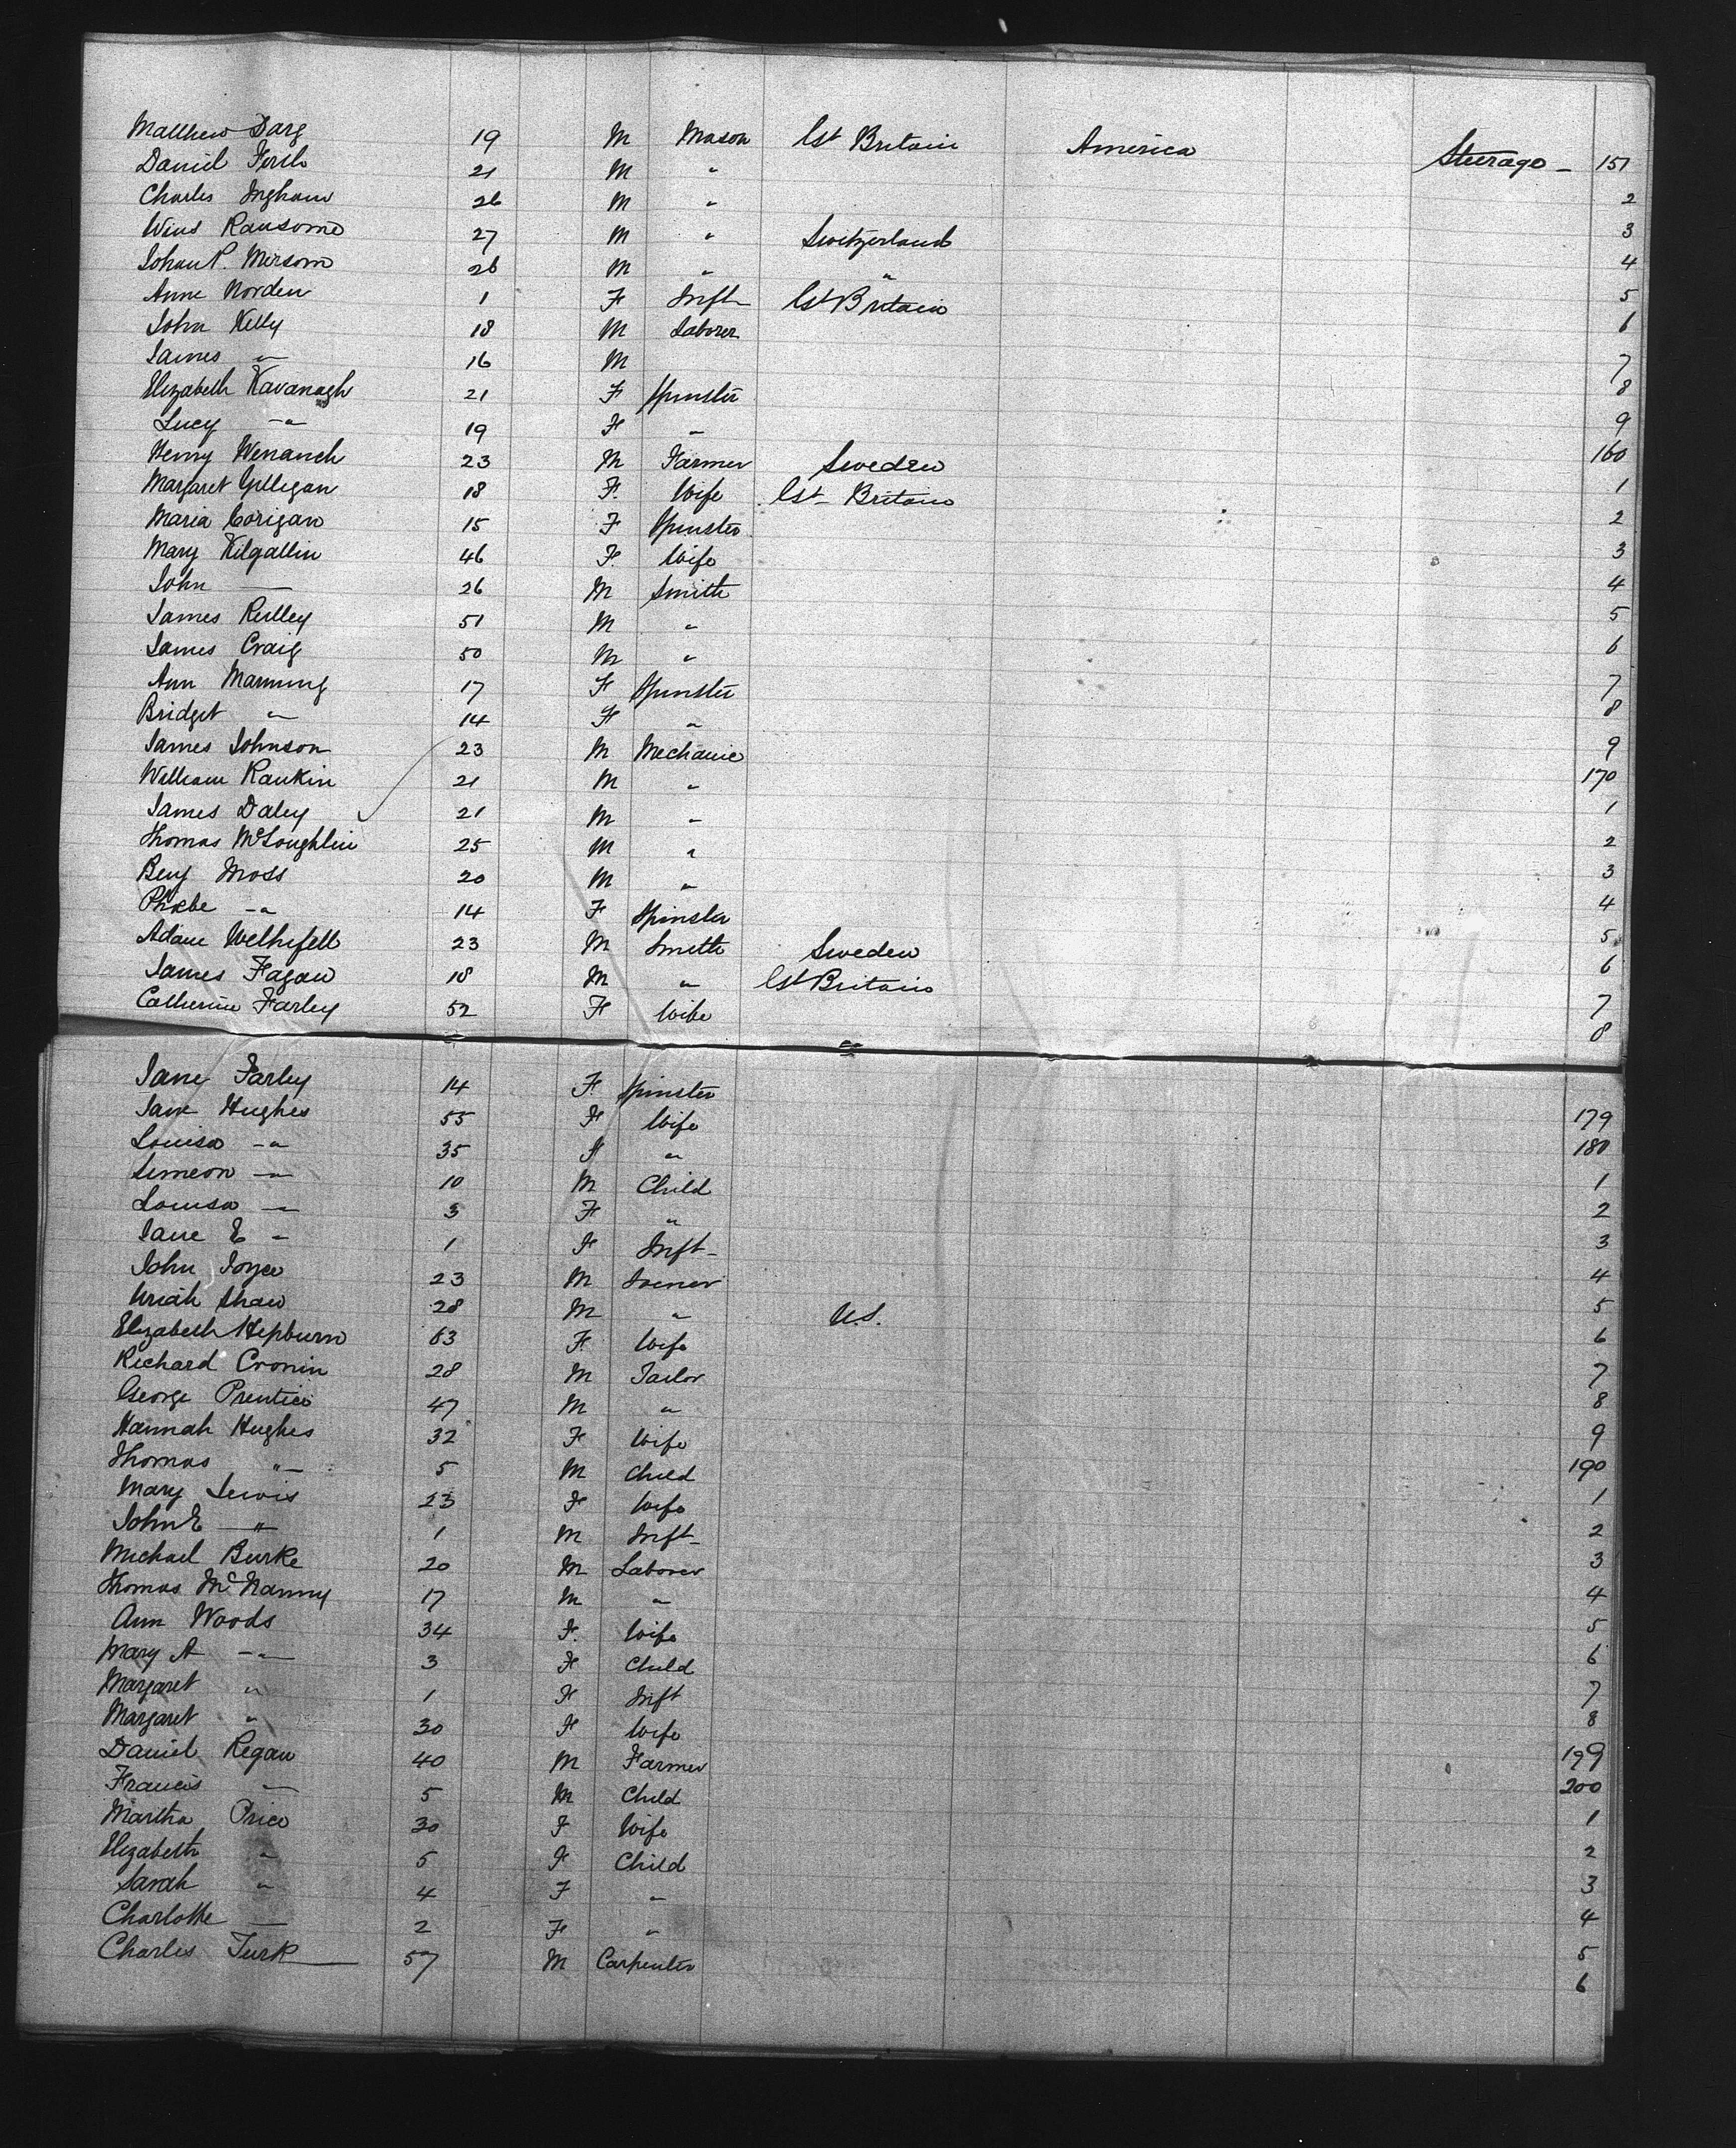 Matthew Darg 19 M Mason Gt Britain America Steerage - 151
Daniel Firth 21 M " 2
Charles Ingham 26 M " 3
Ransome 27 M " Switzerland 4
Johan P. 26 M " " 5
Anne Norden 1 F Inft Gt Britain 6
John Kelly 18 M Laborer 7
James " 16 M 8
Elizabeth Kavanagh 21 F Spinster 9
Lucy " 19 F " 160
Henry 23 M Farmer Sweden 1
Margaret Gilligan 18 F. Wife Gt Britain 2
Maria Corigan 15 F Spinster 3
Mary Kilgallin 46 F. Wife 4
John — 26 M Smith 5
James Reilley 51 M " 6
James Craig 50 M " 7
Ann Manning 17 F Spinster 8
Bridget " 14 F " 9
James Johnson 23 M Mechanic 170
William Rankin 21 M " 1
James Daley 21 M " 2
Thomas McLoughlin 25 M " 3
Benj Moss 20 M " 4
Phoebe " 14 F Spinster 5
Adam 23 M Smith Sweden 6
James Fagan 18 M " Gt Britain 7
Catherine Farley 52 F Wife 8
Jane Farley 14 F. Spinster 179
Jane Hughes 55 F Wife 180
Louisa " 35 F " 1
Simeon " 10 M Child 2
Louisa " 3 F " 3
Jane E " 1 F Inft 4
John Joyce 23 M Joiner 5
Uriah Shaw 28 M " U.S. 6
Elizabeth Hepburn 63 F. Wife 7
Richard Cronin 28 M Tailor 8
George Prentice 47 M " 9
Hannah Hughes 32 F Wife 190
Thomas " 5 M Child 1
Mary Lewis 23 F Wife 2
John E " 1 M Inft 3
Michael Burke 20 M Laborer 4
Thomas McNanny 17 M " 5
Ann Woods 34 F. Wife 6
Mary A " 3 F Child 7
Margaret " 1 F Inft 8
Margaret " 30 F Wife 199
Daniel Regan 40 M Farmer 200
Francis " 5 M Child 1
Martha Price 30 F Wife 2
Elizabeth " 5 F Child 3
Sarah " 4 F " 4
Charlotte — 2 F " 5
Charles Turk 57 M Carpenter 6